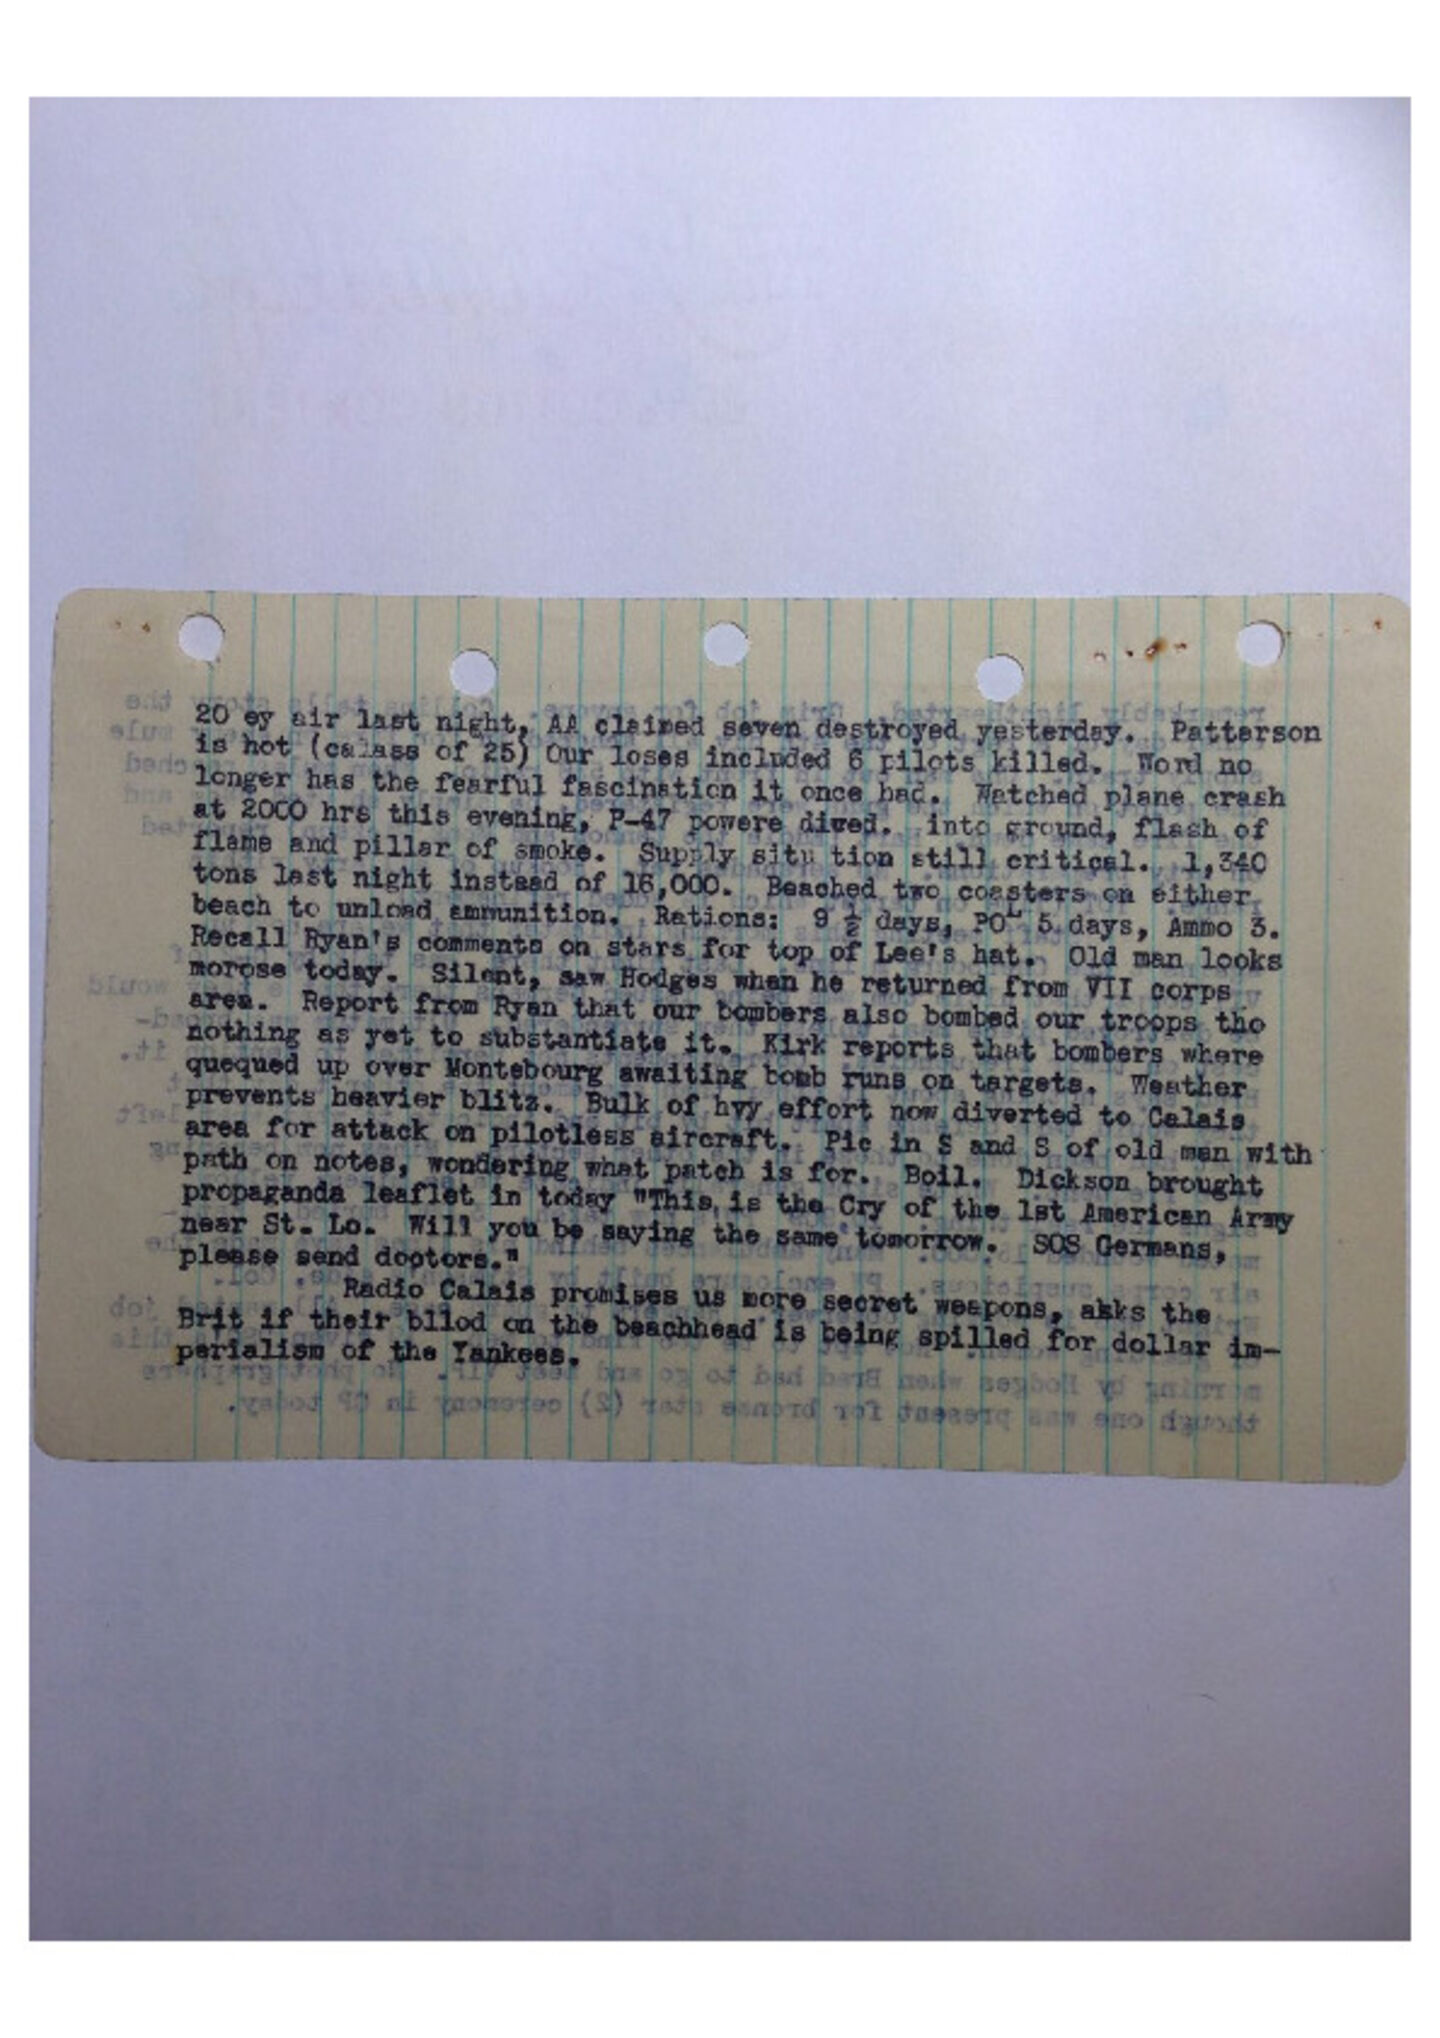 20 ey air last night, AA claimed seven destroyed yesterday. Patterson
is hot (calass of 25) Our loses included 6 pilots killed. Word no
longer has the fearful fascination it once had. Watched plane crash
at 2000 hrs this evening, P-47 powere dived. into ground, flash of
flame and pillar of smoke. Supply situ tion still critical. 1,340
tons last night instead of 16,000. Beached two coasters on either
beach to unload ammunition. Rations: 9 ½ days, POL 5 days, Ammo 3.
Recall Ryan's comments on stars for top of Lee's hat. Old man looks
morose today. Silent, saw Hodges when he returned from VII corps
area. Report from Ryan that our bombers also bombed our troops tho
nothing as yet to substantiate it. Kirk reports that bombers where
quequed up over Montebourg awaiting bomb runs on targets. Weather
prevents heavier blitz. Bulk of hvy effort now diverted to Calais
area for attack on pilotless aircraft. Pic in S and S of old man with
path on notes, wondering what patch is for. Boil. Dickson brought
propaganda leaflet in today "This is the Cry of the 1st American Army
near St. Lo. Will you be saying the same tomorrow. SOS Germans,
please send doctors."
Radio Calais promises us more secret weapons, asks the
Brit if their bllod on the beachhead is being spilled for dollar im-
perialism of the Yankees.